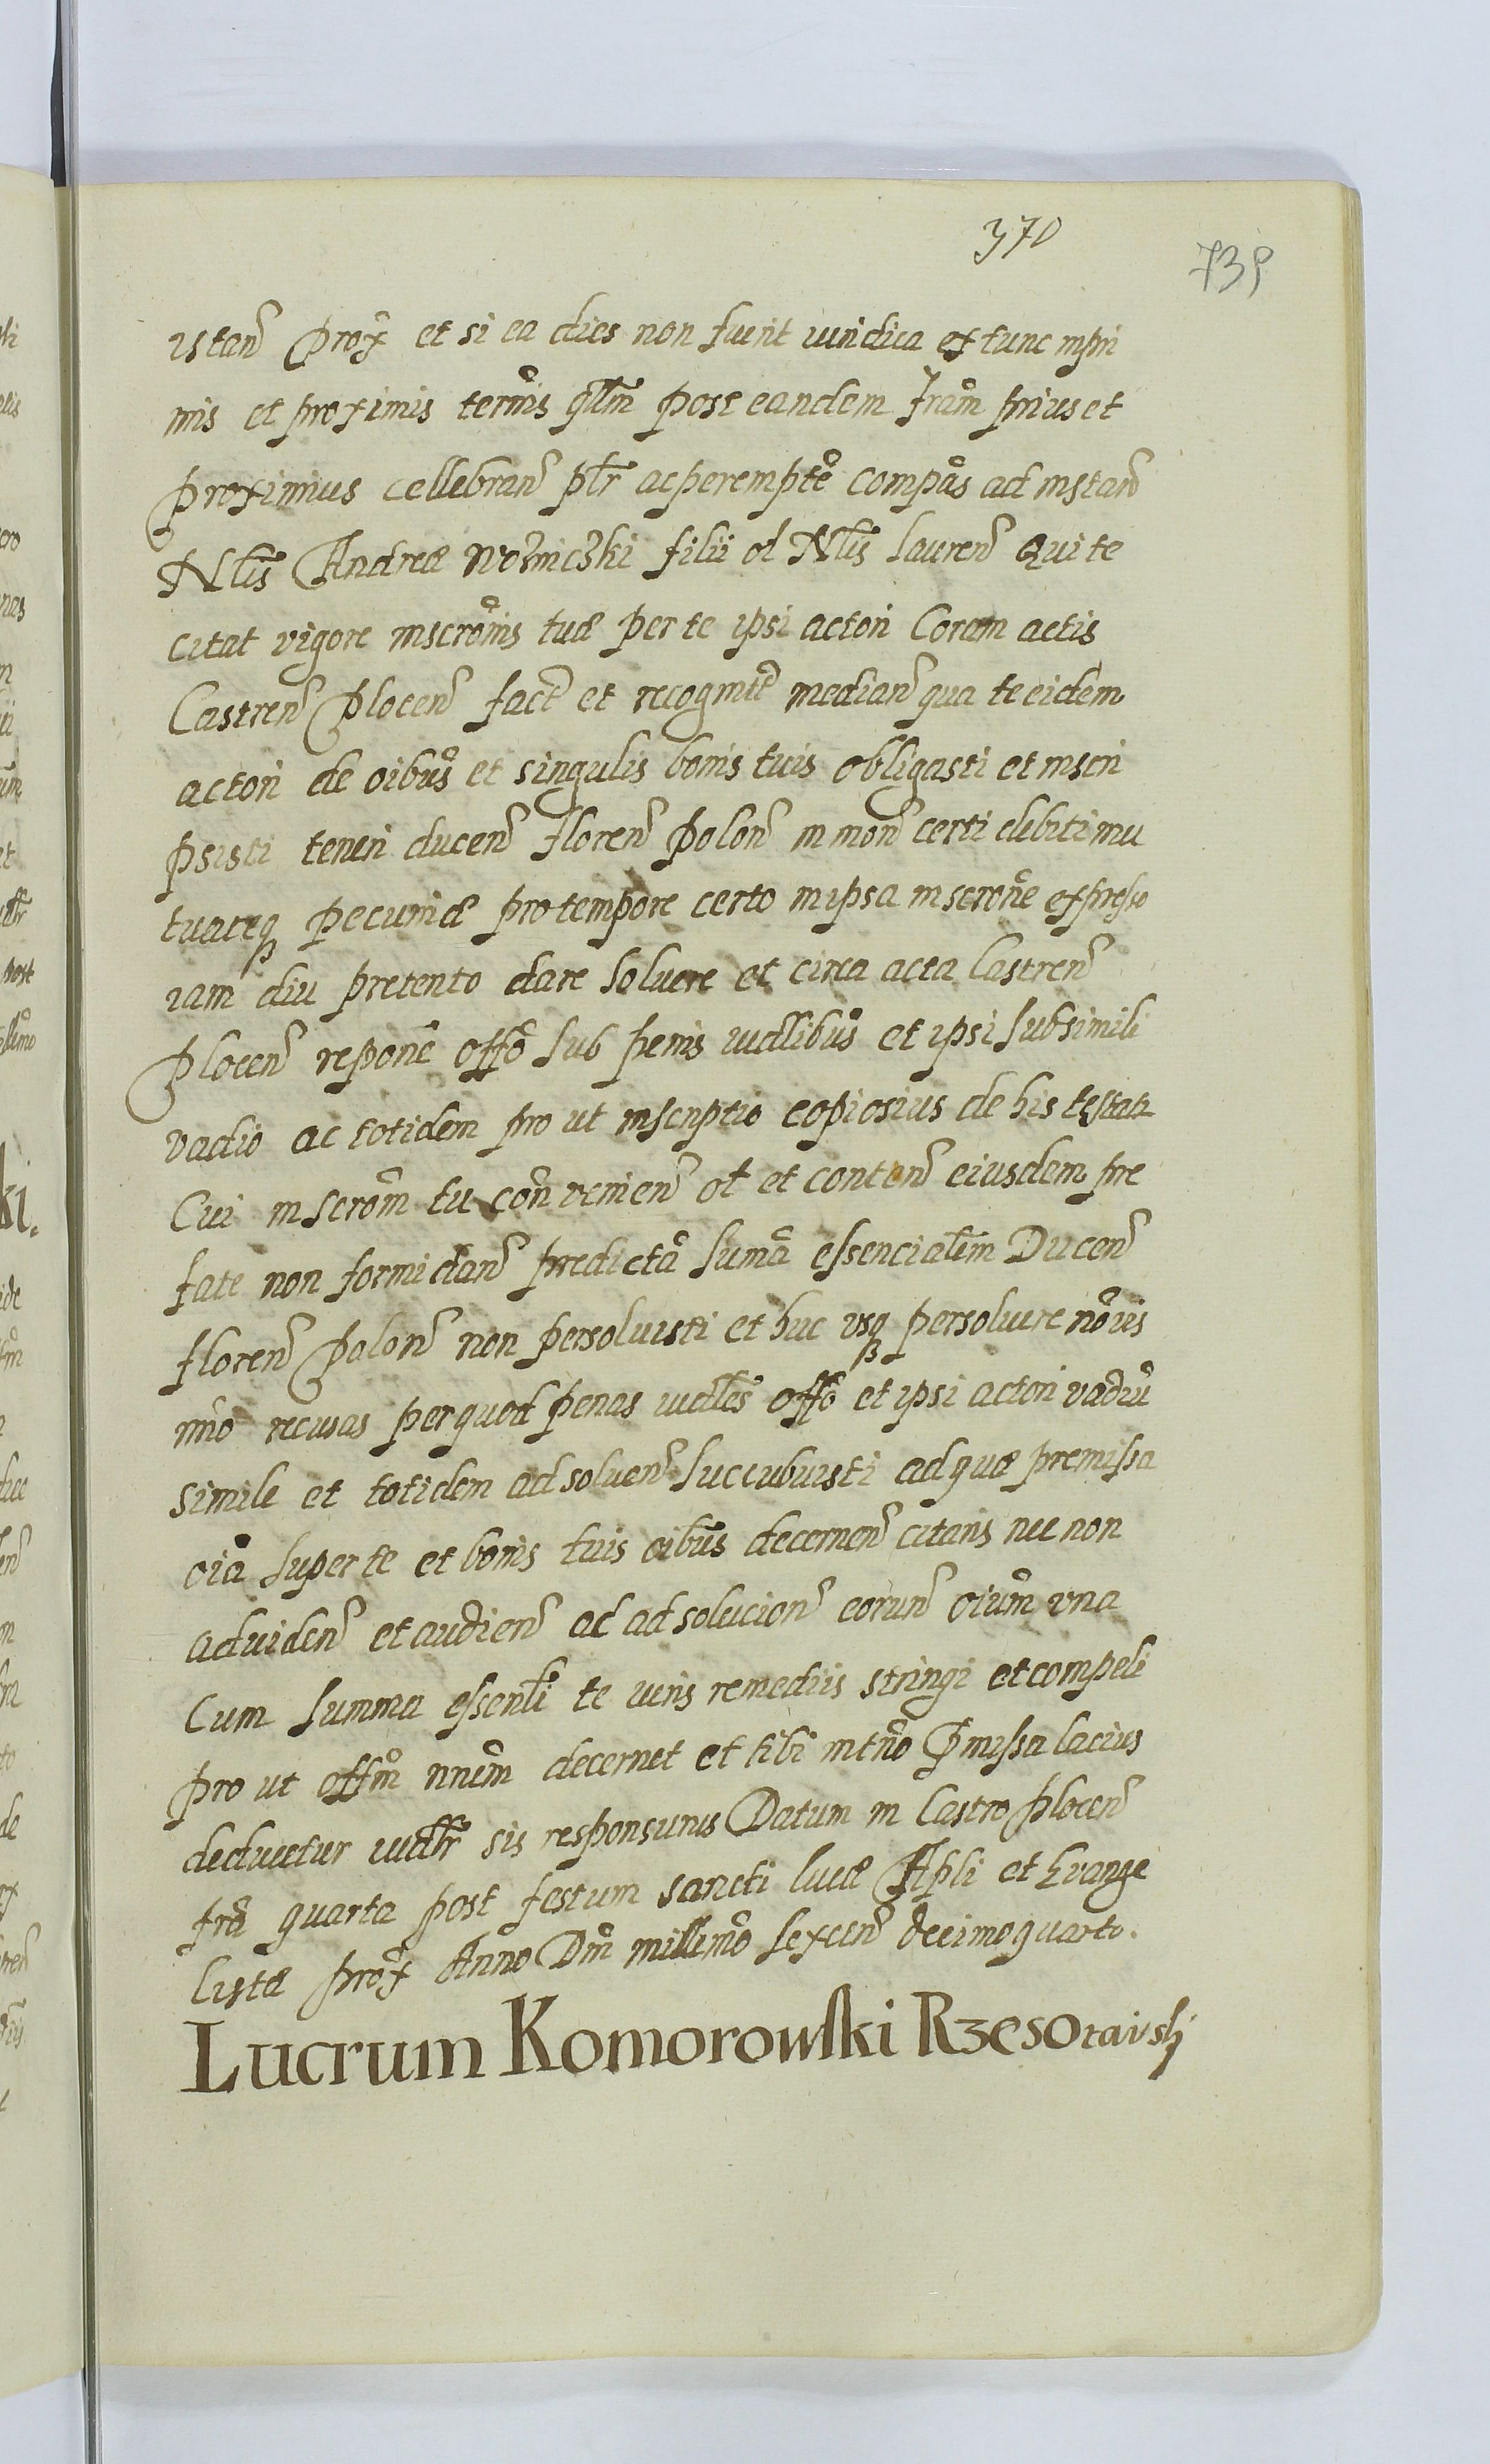 370
739
istan prox et si ea dies non fuerit iuridica ex tunc in pri
mis et proximis termis qlm post eandem fram prius et
proximius cellebran ptr ac perempte compas ad instan
Nlis Andreæ Nosniczki filii ol Nlis Lauren Qui te
citat vigore inscroms tuæ per te ipsi actori Coram actis
Castren Plocen fact et recognit median qua te eidem
actori de oibus et singulis bonis tuis obligasti et inscri
psisti teneri ducen floren polon in mon certi debiti mu
tuateq pecuniæ pro tempore certo in ipsa inscrone expresso
iam diu pretento dare soluere et circa acta Castren
Plocen reponē offō sub penis iudlibus et ipsi sub simili
vadio ac totidem pro ut inscriptio copiosius de his testatr
Cui inscrom tu con venien ol et conten eiusdem pre
fate non formidan predictā sumā essencialem Ducen
floren Polon non persoluisti et huc usq persoluere no vis
imo recusas per quod penas iudles offō et ipsi actori vadiū
simile et totidem ad soluen succubuisti ad quæ premissa
oia super te et bonis tuis oibus decernen citaris nec non
ad viden et audien ac ad solucion eorun oium una
Cum summa essenli te uiris remediis stringi et compeli
pro ut offm nrum decernet et tibi in tno pmissa lacius
deducetur iudlr sis responsurus Datum in Castro plocen
fra quarta post festum sancti lucæ Apli et Evange
listæ prox Anno Dm millimo sexcen decimo quarto.
Lucrum Komorowski Rzeso